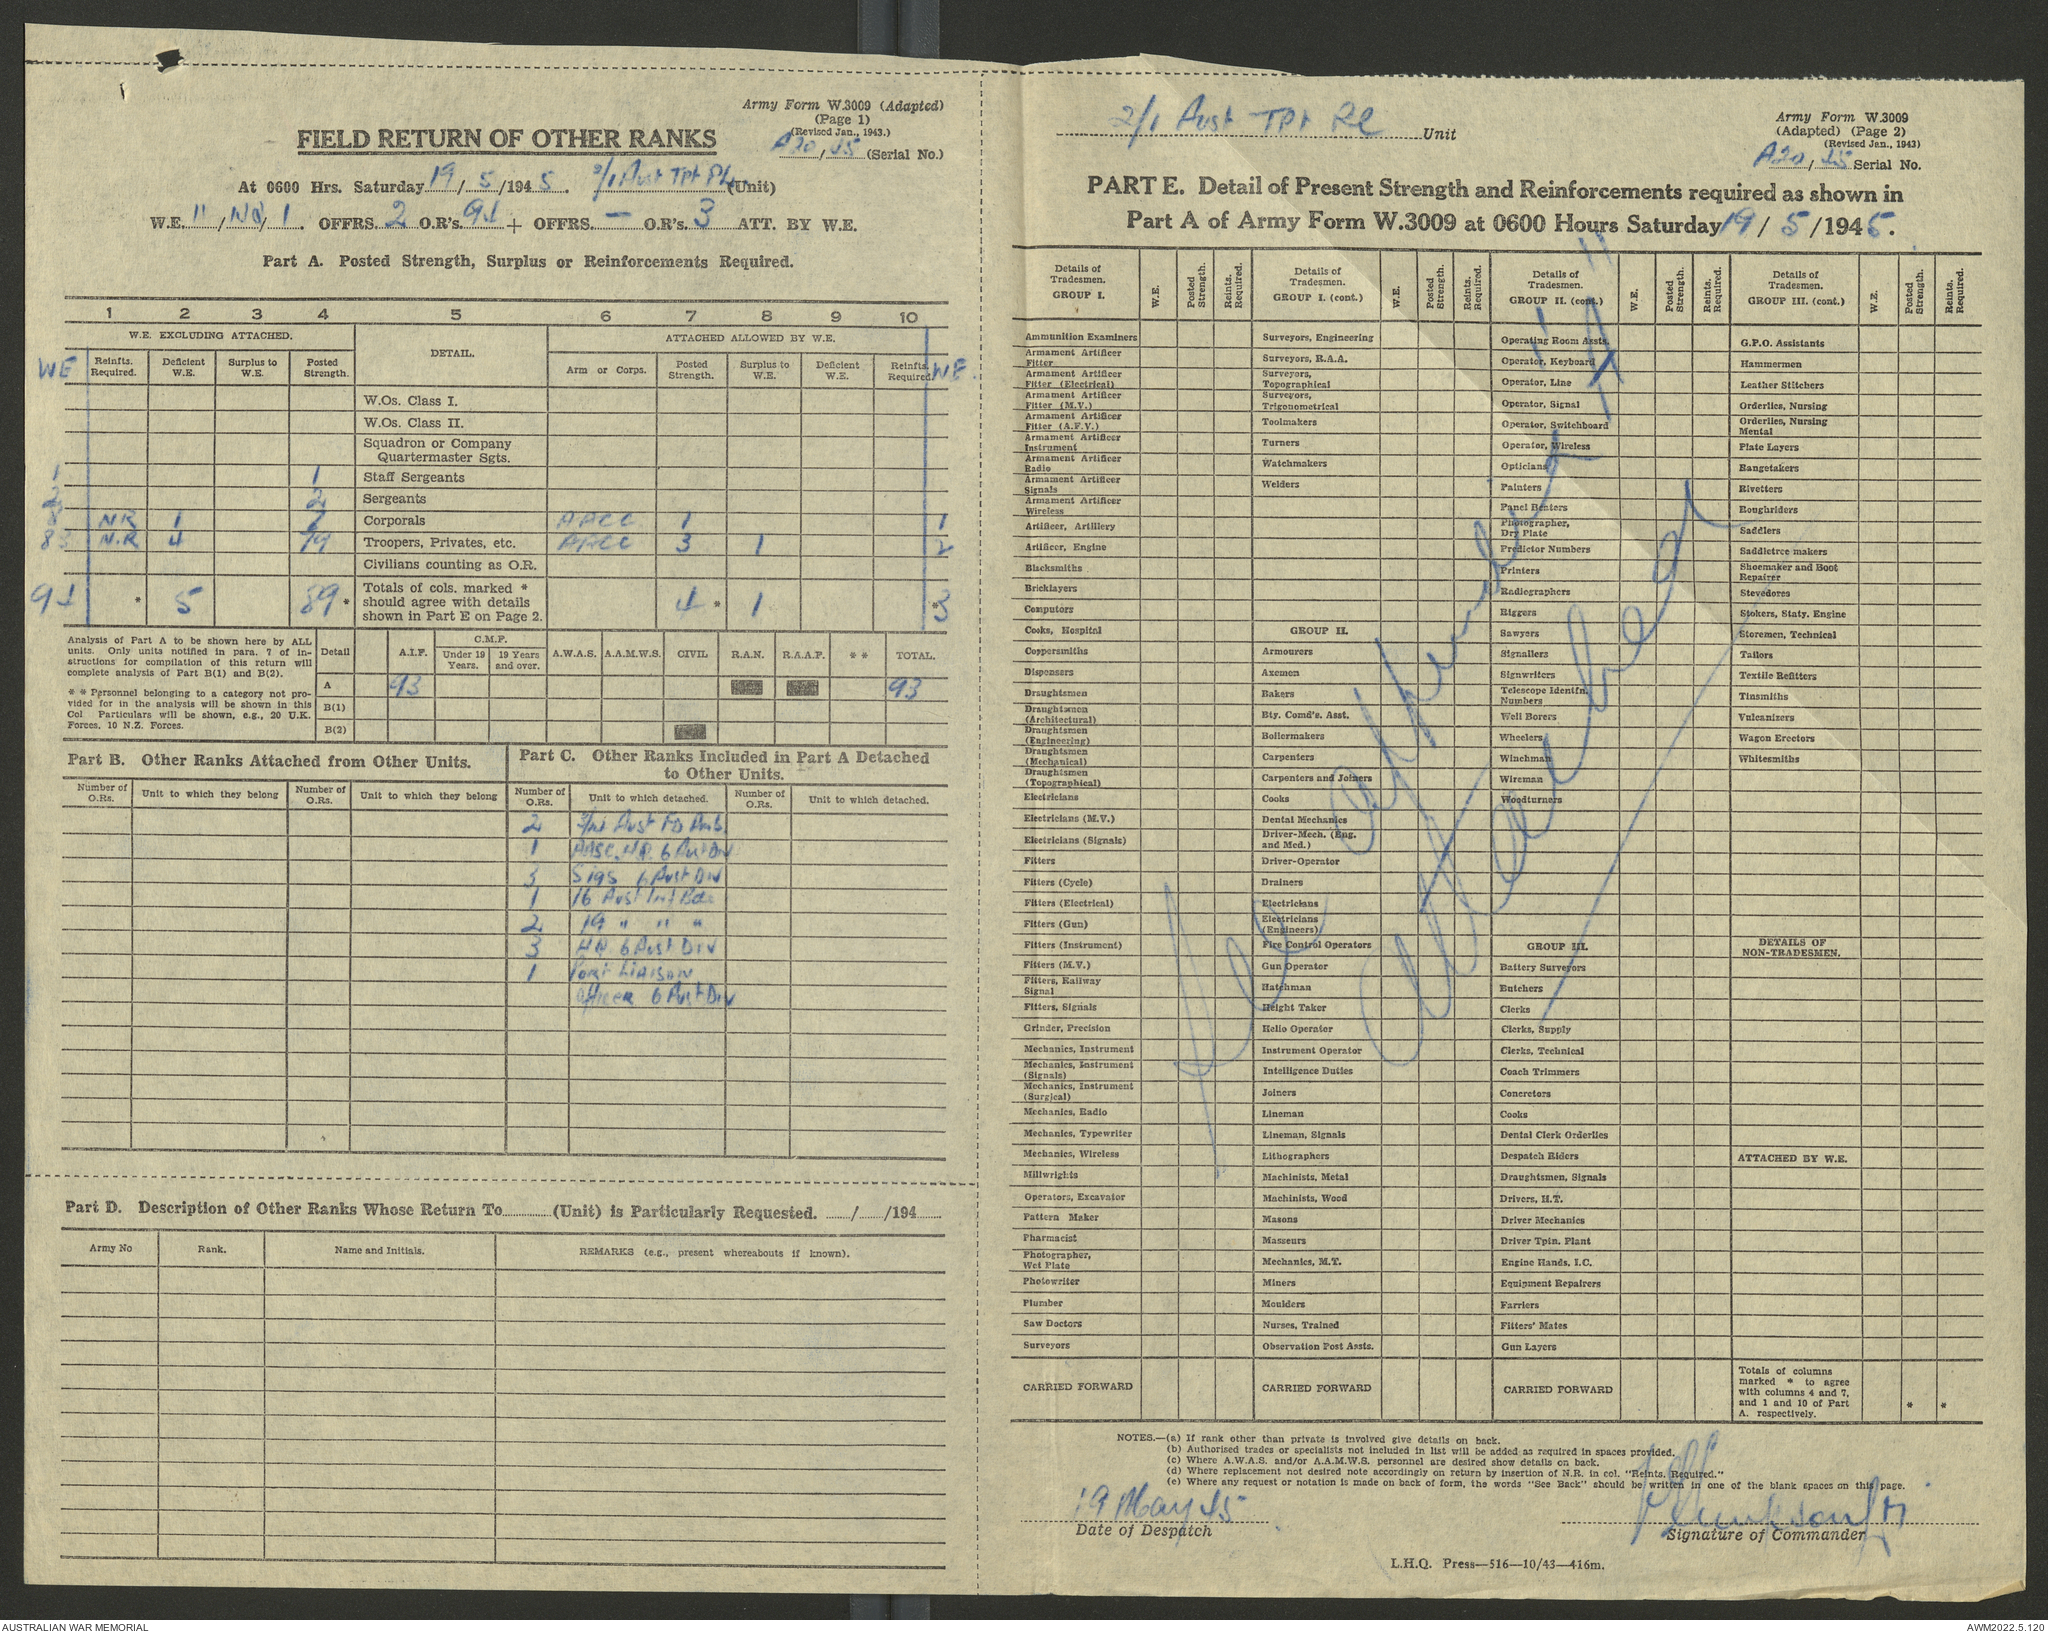 Army Form W.3009 (Adapted)
(Page 1)
(Revised Jan., 1943.)
A20/45 (Serial No.)
FIELD RETURN OF OTHER RANKS
At 0600 Hrs. Saturday 19/5/1945. 2/1 Aust Tpt Pl (Unit)
W.E. 11/NG/1. OFFRS. 2 O.R's. 94 + OFFRS. — O.R's. 3 ATT. BY W.E.
Part A. Posted Strength, Surplus or Reinforcements Required.
1 2 3 4 5 6 7 8 9 10
W.E. EXCLUDING ATTACHED. DETAIL. ATTACHED ALLOWED BY W.E.
WE Reinfts. Required. Deficient W.E. Surplus to W.E. Posted Strength. Arm or Corps. Posted Strength. Surplus to W.E. Deficient W.E. Reinfts. Required. WE.
W.Os. Class I.
W.Os. Class II.
Squadron or Company
Quartermaster Sgts.
1 1 Staff Sergeants
2 2 Sergeants
8 NR 1 7 Corporals AACC 1 1
83 N.R 4 79 Troopers, Privates, etc. AACC 3 1 2
Civilians counting as O.R.
94 * 5 89 * Totals of cols. marked * should agree with details shown in Part E on Page 2. 4 * 1 * 3
Analysis of Part A to be shown here by ALL
units. Only units notified in para. 7 of in-
structions for compilation of this return will
complete analysis of Part B(1) and B(2).
* * Personnel belonging to a category not pro-
vided for in the analysis will be shown in this
Col Particulars will be shown, e.g., 20 U.K.
Forces, 10 N.Z. Forces.
Detail A.I.F. C.M.F. Under 19 Years. 19 Years and over. A.W.A.S. A.A.M.W.S. CIVIL R.A.N. R.A.A.F. * * TOTAL.
A 93 93
B(1)
B(2)
Part B. Other Ranks Attached from Other Units.
Number of O.Rs. Unit to which they belong Number of O.Rs. Unit to which they belong
Part C. Other Ranks Included in Part A Detached
to Other Units.
Number of O.Rs. Unit to which detached. Number of O.Rs. Unit to which detached.
2 Aust Fd Amb.
1 AASC. HQ. 6 Aust Div
3 Sigs 6 Aust Div
1 16 Aust Inf Bde
2 19 " " "
3 HQ. 6 Aust Div
1 Port Liaison
Officer 6 Aust Div
Part D. Description of Other Ranks Whose Return To (Unit) is Particularly Requested. / /194
Army No Rank. Name and Initials. REMARKS (e.g., present whereabouts if known).
2/1 Aust Tpt Pl Unit
Army Form W.3009
(Adapted) (Page 2)
(Revised Jan., 1943)
A20/45 Serial No.
PART E. Detail of Present Strength and Reinforcements required as shown in
Part A of Army Form W.3009 at 0600 Hours Saturday 19/5/1945.
Details of Tradesmen. GROUP I. W.E. Posted Strength. Reints. Required.
Ammunition Examiners
Armament Artificer Fitter
Armament Artificer Fitter (Electrical)
Armament Artificer Fitter (M.V.)
Armament Artificer Fitter (A.F.V.)
Armament Artificer Instrument
Armament Artificer Radio
Armament Artificer Signals
Armament Artificer Wireless
Artificer, Artillery
Artificer, Engine
Blacksmiths
Bricklayers
Computors
Cooks, Hospital
Coppersmiths
Dispensers
Draughtsmen
Draughtsmen (Architectural)
Draughtsmen (Engineering)
Draughtsmen (Mechanical)
Draughtsmen (Topographical)
Electricians
Electricians (M.V.)
Electricians (Signals)
Fitters
Fitters (Cycle)
Fitters (Electrical)
Fitters (Gun)
Fitters (Instrument)
Fitters (M.V.)
Fitters, Railway Signal
Fitters, Signals
Grinder, Precision
Mechanics, Instrument
Mechanics, Instrument (Signals)
Mechanics, Instrument (Surgical)
Mechanics, Radio
Mechanics, Typewriter
Mechanics, Wireless
Millwrights
Operators, Excavator
Pattern Maker
Pharmacist
Photographer, Wet Plate
Photowriter
Plumber
Saw Doctors
Surveyors
CARRIED FORWARD
Details of Tradesmen. GROUP I. (cont.) W.E. Posted Strength. Reints. Required.
Surveyors, Engineering
Surveyors, R.A.A.
Surveyors, Topographical
Surveyors, Trigonometrical
Toolmakers
Turners
Watchmakers
Welders
GROUP II.
Armourers
Axemen
Bakers
Bty. Comd's. Asst.
Boilermakers
Carpenters
Carpenters and Joiners
Cooks
Dental Mechanics
Driver-Mech. (Eng. and Med.)
Driver-Operator
Drainers
Electricians
Electricians (Engineers)
Fire Control Operators
Gun Operator
Hatchman
Height Taker
Helio Operator
Instrument Operator
Intelligence Duties
Joiners
Lineman
Lineman, Signals
Lithographers
Machinists, Metal
Machinists, Wood
Masons
Masseurs
Mechanics, M.T.
Miners
Moulders
Nurses, Trained
Observation Post Assts.
CARRIED FORWARD
Details of Tradesmen. GROUP II. (cont.) W.E. Posted Strength. Reints. Required.
Operating Room Assts.
Operator, Keyboard
Operator, Line
Operator, Signal
Operator, Switchboard
Operator, Wireless
Opticians
Painters
Panel Beaters
Photographer, Dry Plate
Predictor Numbers
Printers
Radiographers
Riggers
Sawyers
Signallers
Signwriters
Telescope Identfn. Numbers
Well Borers
Wheelers
Winchman
Wireman
Woodturners
GROUP III.
Battery Surveyors
Butchers
Clerks
Clerks, Supply
Clerks, Technical
Coach Trimmers
Concretors
Cooks
Dental Clerk Orderlies
Despatch Riders
Draughtsmen, Signals
Drivers, H.T.
Driver Mechanics
Driver Tptn. Plant
Engine Hands, I.C.
Equipment Repairers
Farriers
Fitters' Mates
Gun Layers
CARRIED FORWARD
Details of Tradesmen. GROUP III. (cont.) W.E. Posted Strength. Reints. Required.
G.P.O. Assistants
Hammermen
Leather Stitchers
Orderlies, Nursing
Orderlies, Nursing Mental
Plate Layers
Rangetakers
Rivetters
Roughriders
Saddlers
Saddletree makers
Shoemaker and Boot Repairer
Stevedores
Stokers, Staty. Engine
Storemen, Technical
Tailors
Textile Refitters
Tinsmiths
Vulcanizers
Wagon Erectors
Whitesmiths
DETAILS OF NON-TRADESMEN.
ATTACHED BY W.E.
Totals of columns marked * to agree with columns 4 and 7, and 1 and 10 of Part A. respectively. * *
attached
NOTES.—(a) If rank other than private is involved give details on back.
(b) Authorised trades or specialists not included in list will be added as required in spaces provided.
(c) Where A.W.A.S. and/or A.A.M.W.S. personnel are desired show details on back.
(d) Where replacement not desired note accordingly on return by insertion of N.R. in col. "Reints. Required."
(e) Where any request or notation is made on back of form, the words "See Back" should be written in one of the blank spaces on this page.
19 May 45
Date of Despatch
Signature of Commander
L.H.Q. Press—516—10/43—416m.
AUSTRALIAN WAR MEMORIAL
AWM2022.5.120